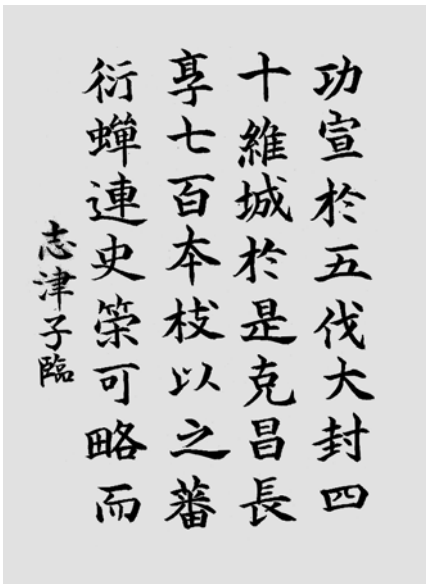 功宣於五伐大封四
十維城於是克昌長
享七百本枝以之蕃
衍蟬連史筞可略而
志津子臨